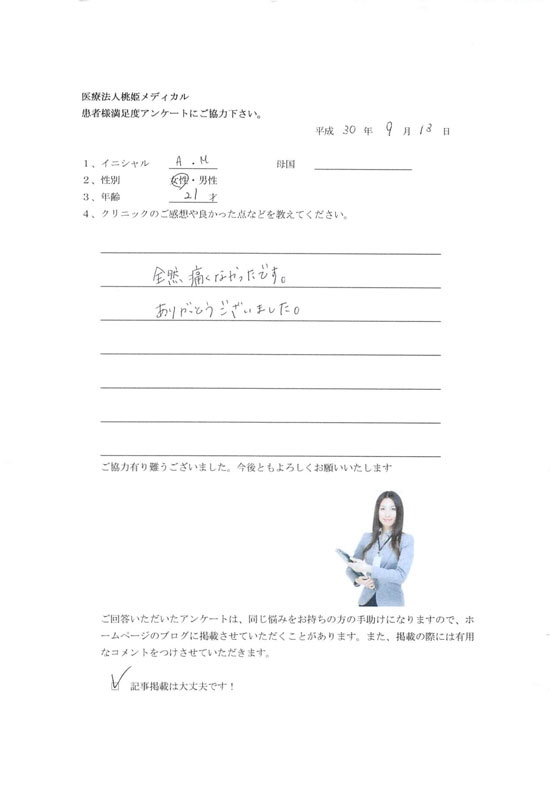 医療法人桃姫メディカル
患者様満足度アンケートにご協力下さい。
平成 30 年 9 月 13 日
1、イニシャル A.M 母国
2、性別 女性・男性
3、年齢 21 才
4、クリニックのご感想や良かった点などを教えてください。
全然痛くなかったです。
ありがとうございました。
ご協力有り難うございました。今後ともよろしくお願いいたします
ご回答いただいたアンケートは、同じ悩みをお持ちの方の手助けになりますので、ホ
ームページのブログに掲載させていただくことがあります。また、掲載の際には有用
なコメントをつけさせていただきます。
記事掲載は大丈夫です！